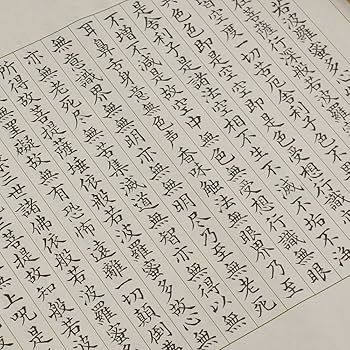 若波羅蜜多心
菩薩行深般若波羅蜜多
空度一切苦厄舍利子色不
色色即是空空即是色受想行識
是舍利子是諸法空相不生不滅不垢不淨
不增不減是故空中無色無受想行識無眼
耳鼻舌身意無色聲香味觸法無眼界乃至
無意識界無無明亦無無明盡乃至無老死
亦無老死盡無苦集滅道無智亦無得以無
所得故菩提薩埵依般若波羅蜜多故心無
無罣礙故無有恐怖遠離一切顛倒夢
三世諸佛依般若波羅蜜多故
菩提故知般若波
無上咒是